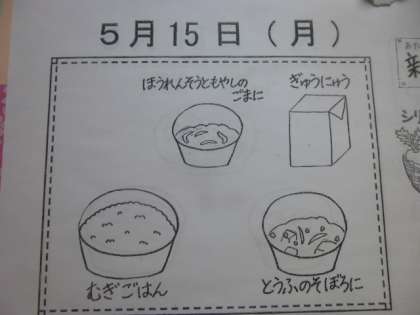 5月15日(月)
ほうれんそうともやしの
ごまに
ぎゅうにゅう
むぎごはん
とうふのそぼろに
シリ